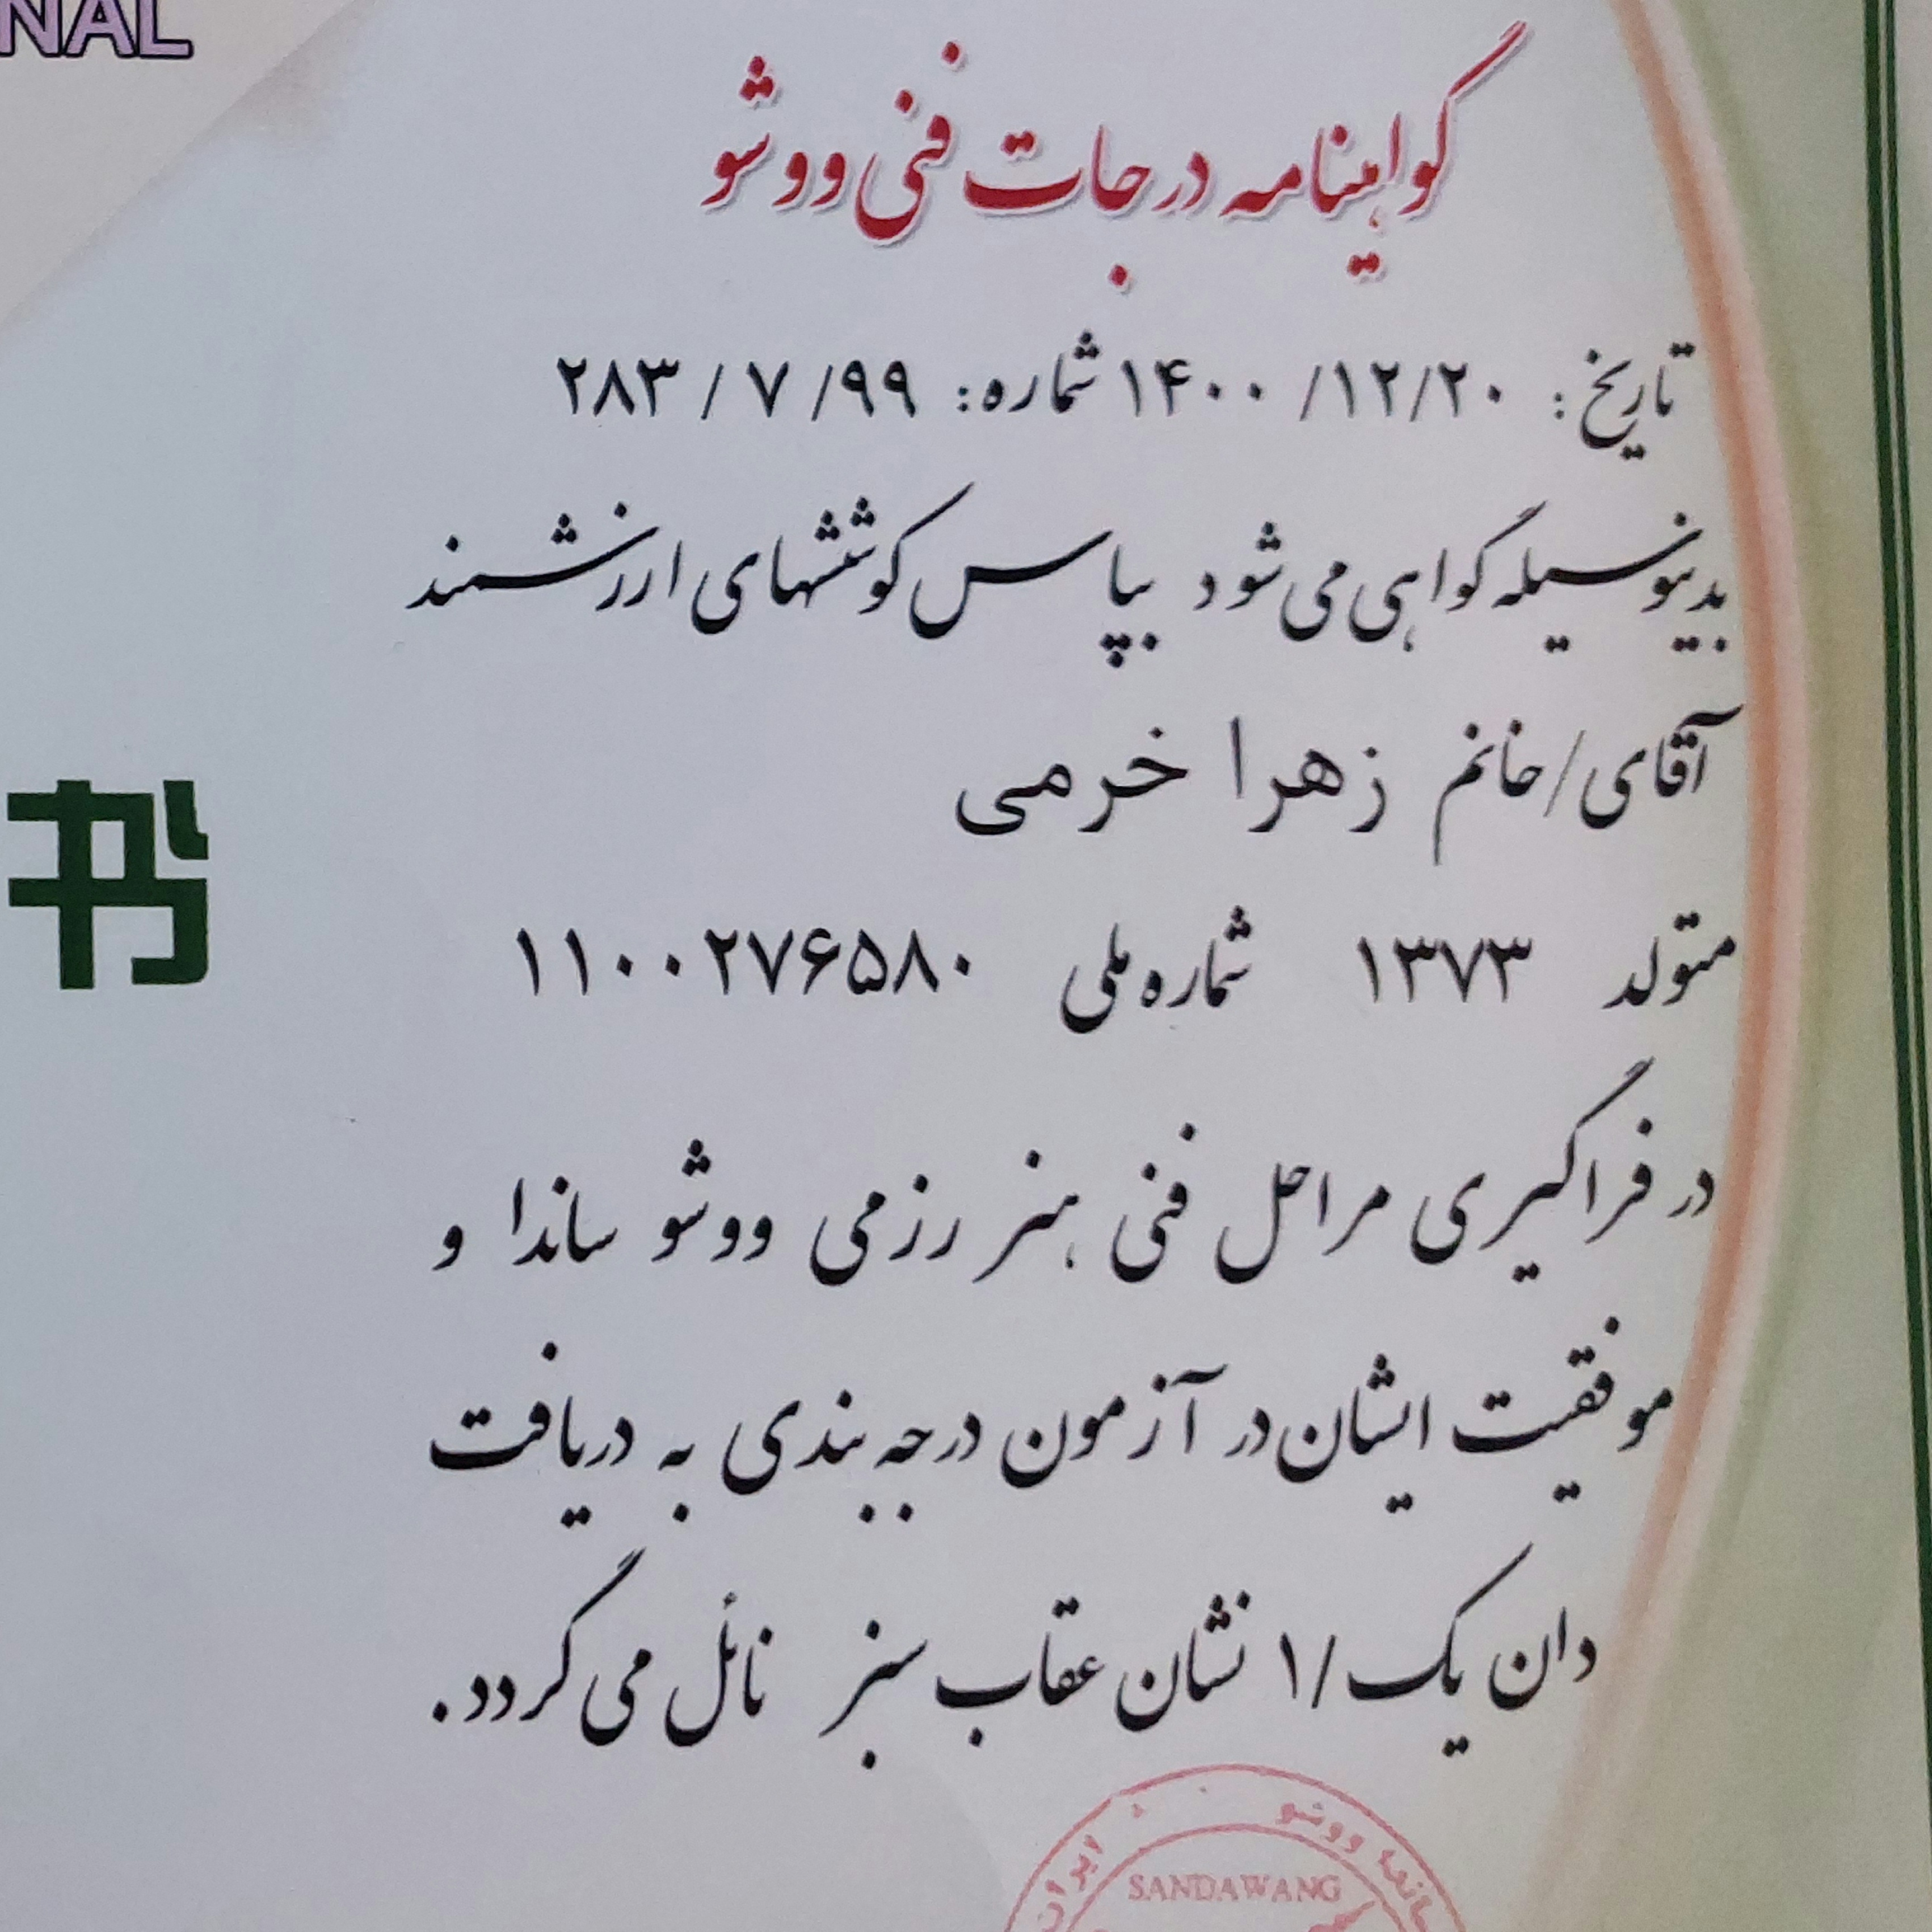 NAL
گواهینامه درجات فنی ووشو
تاریخ: ۱۴۰۰/۱۲/۲۰ شماره: ۲۸۳/۷/۹۹
بدینوسیله گواهی می شود بپاس کوششهای ارزشمند
آقای/خانم زهرا خرمی
متولد ۱۳۷۳ شماره ملی ۱۱۰۰۲۷۶۵۸۰
书
در فراگیری مراحل فنی هنر رزمی ووشو ساندا و
موفقیت ایشان در آزمون درجه بندی به دریافت
دان یک/۱ نشان عقاب سبز نائل می گردد.
ووشو
ایران
SANDAWANG